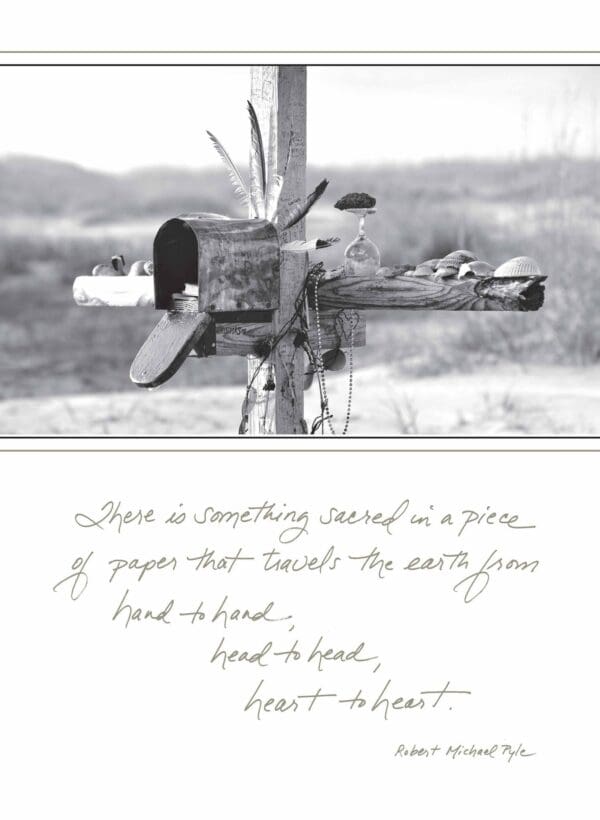 There is something sacred in a piece
of paper that travels the earth from
hand to hand,
head to head,
heart to heart.
Robert Michael Pyle